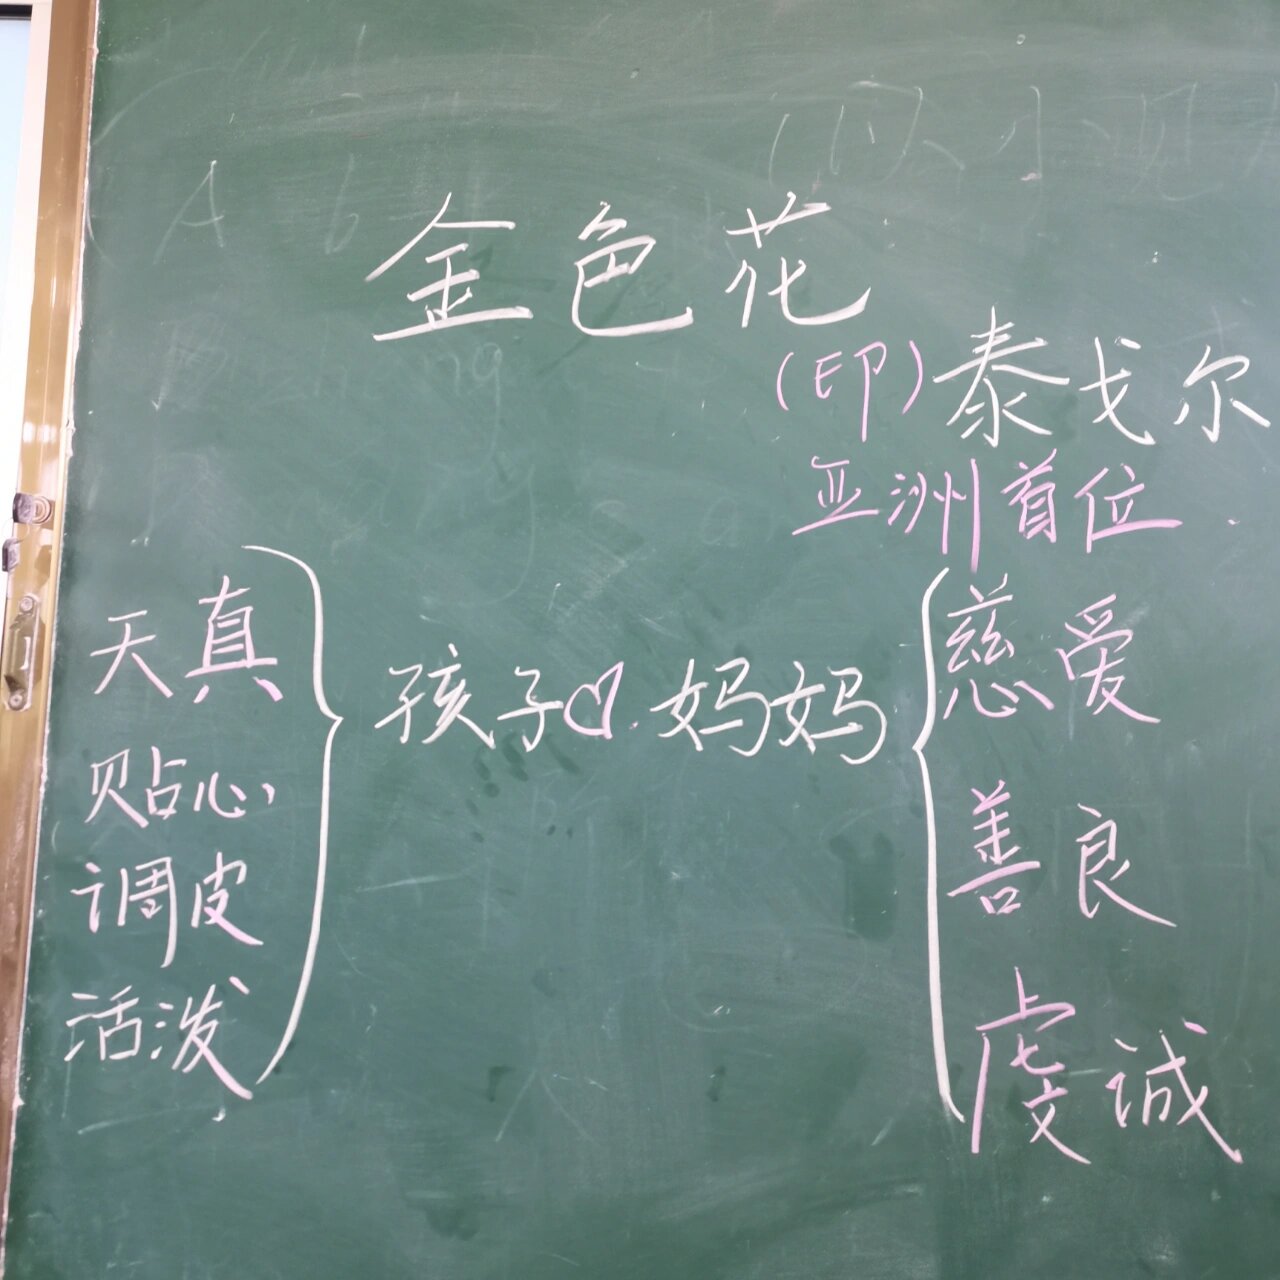 金色花
(印)泰戈尔
亚洲首位
天真
贴心
调皮
活泼
孩子♡妈妈
慈爱
善良
虔诚